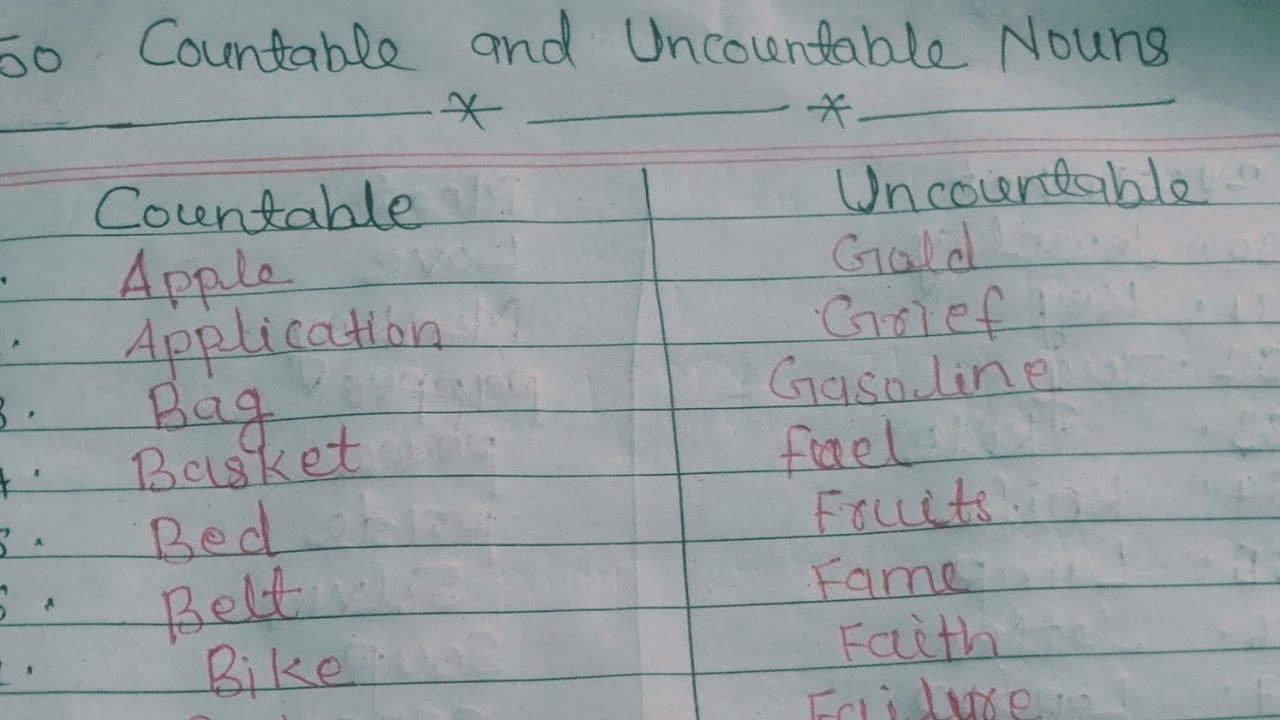 50. Countable and Uncountable Nouns
Countable Uncountable
Apple Gold
Application Grief
3. Bag Gasoline
4. Basket Fuel
5. Bed Fruits
6. Belt Fame
Bike Faith
Failure